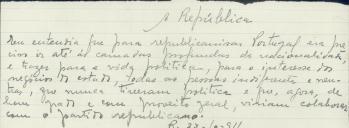 A República
Eu entendia que para republicanisar Portugal era pre-
ciso ir até ás camadas profundas da nacionalidade
e trazer para a vida politica, para o interesse dos
negocios do estado, todas as pessoas indiferentes e neu-
tras, que nunca tiveram politica e que, agora, de
bom grado e com proveito geral, viriam colaborar
com o partido republicano.